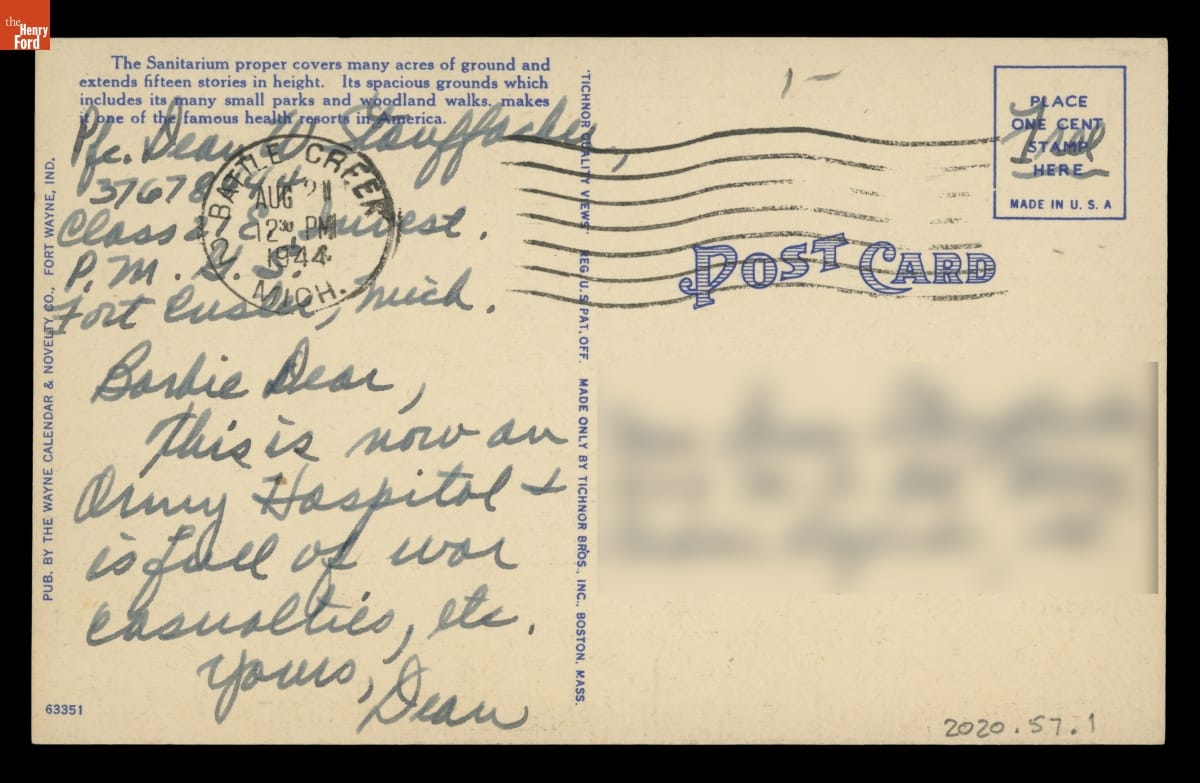 the
Henry
Ford
The Sanitarium proper covers many acres of ground and
extends fifteen stories in height. Its spacious grounds which
includes its many small parks and woodland walks, makes
it one of the famous health resorts in America.
Pfc. Dean Stauffacher,
Class 27 E Invest.
P.M.
Fort Custer, Mich.
BATTLE CREEK
AUG 21
12 30 PM
1944
2
MICH.
Barbie Dear,
This is now an
Army Hospital &
is full of war
casualties, etc.
Yours,
Dean
63351
PUB. BY THE WAYNE CALENDAR & NOVELTY CO., FORT WAYNE, IND.
"TICHNOR QUALITY VIEWS" REG. U. S. PAT. OFF. MADE ONLY BY TICHNOR BROS., INC., BOSTON, MASS.
1-
PLACE
ONE CENT
STAMP
HERE
MADE IN U. S. A
Free
POST CARD
2020.57.1